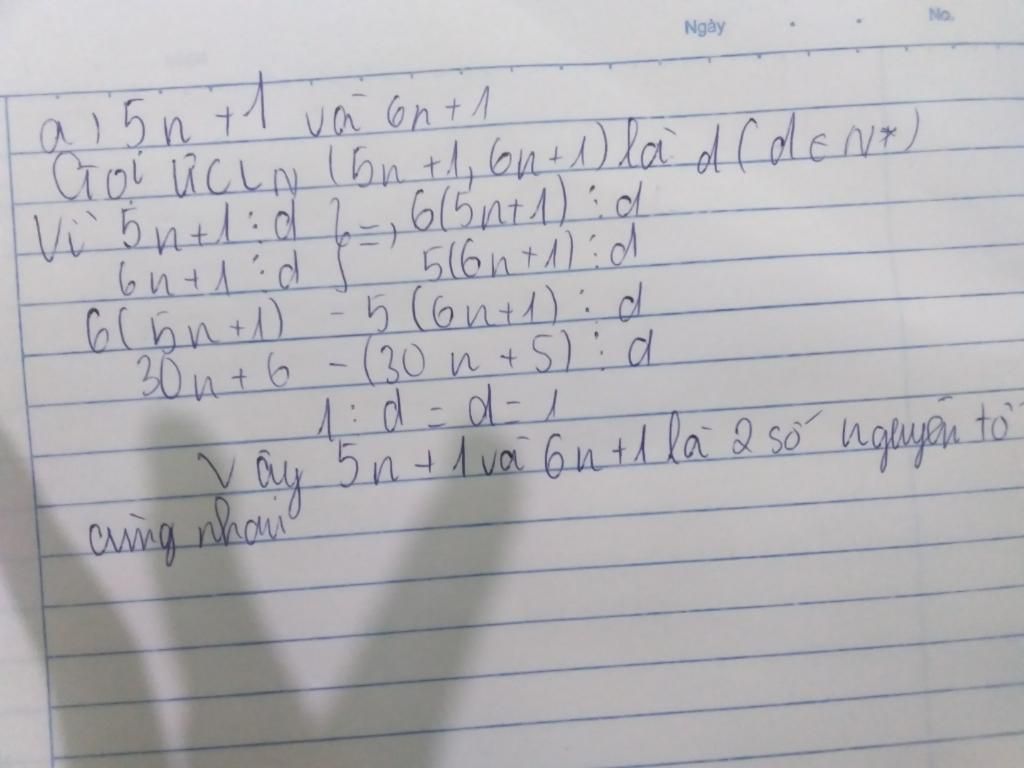 Ngày . . No.
a) 5n + 1 và 6n + 1
Gọi ƯCLN (5n+1, 6n+1) là d (d ∈ N*)
Vì 5n+1 ⋮ d } =, 6(5n+1) ⋮ d
6n+1 ⋮ d } 5(6n+1) ⋮ d
6(5n+1) - 5(6n+1) ⋮ d
30n + 6 - (30n + 5) ⋮ d
1 : d = d = 1
Vây 5n + 1 và 6n + 1 là 2 số nguyên tố
cùng nhau